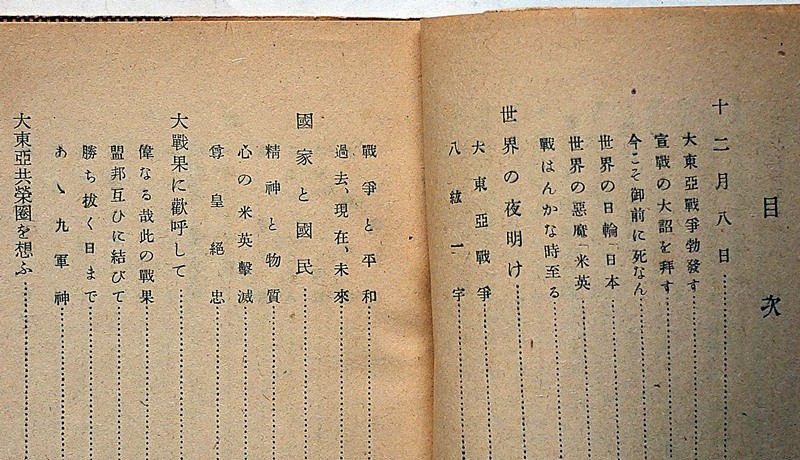 目次
十二月八日
大東亞戰爭勃發す
宣戰の大詔を拜す
今こそ御前に死なん
世界の日輪「日本」
世界の惡魔「米英」
戰はんかな時至る
世界の夜明け
大東亞戰爭
八紘一宇
戰爭と平和
過去、現在、未來
國家と國民
精神と物質
心の米英擊滅
尊皇絕忠
大戰果に歡呼して
偉なる哉此の戰果
盟邦互ひに結びて
勝ち拔く日まで
あゝ九軍神
大東亞共榮圈を想ふ